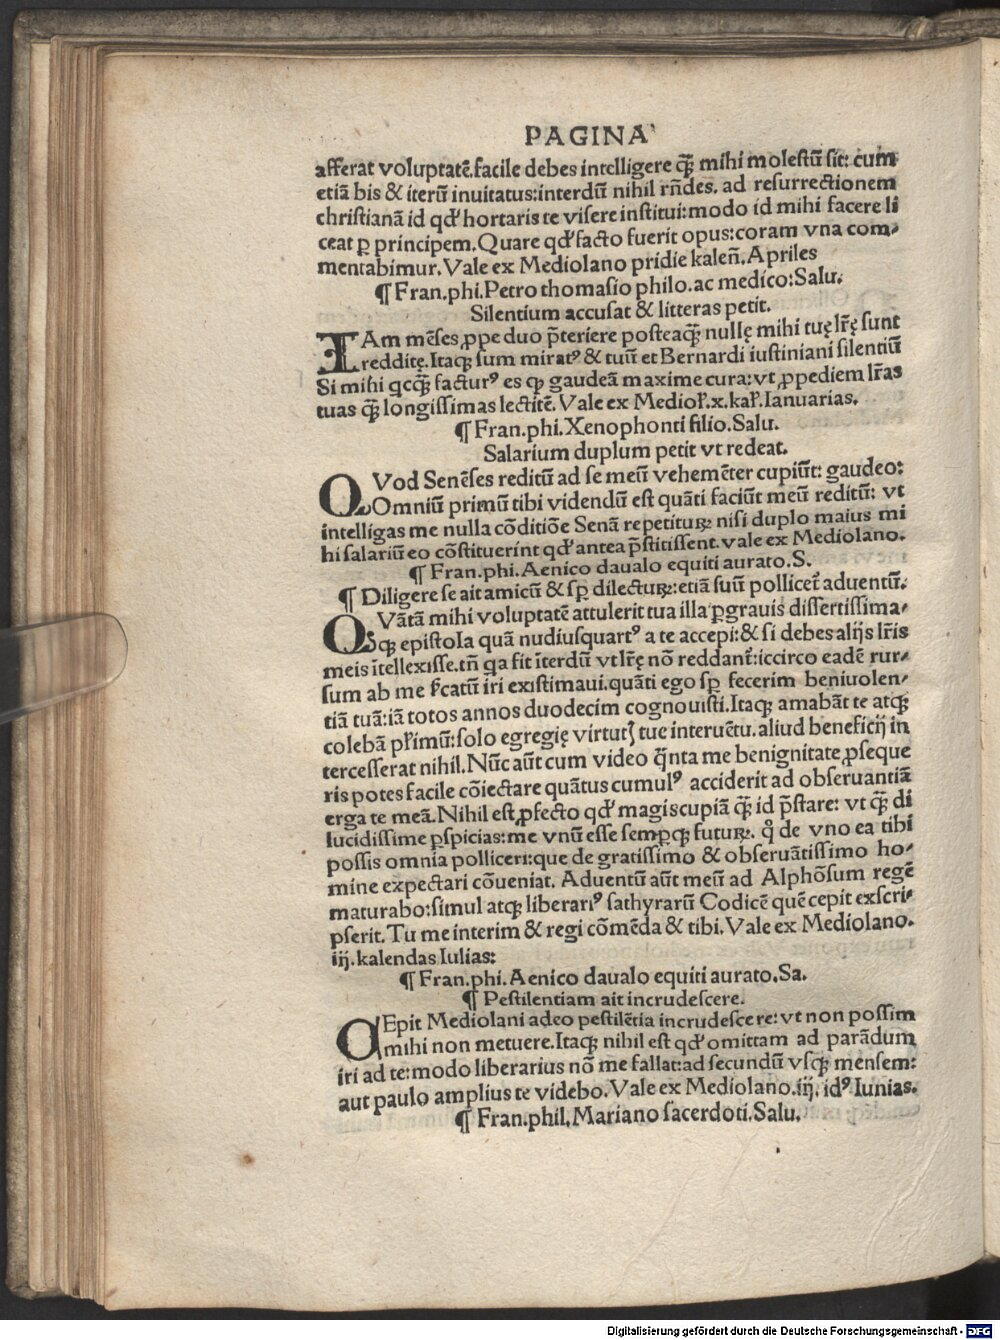 PAGINA
afferat voluptatē.facile debes intelligere qꝫ̄ mihi molestū sit: cum
etiā bis & iterū inuitatus:interdū nihil rn̄des. ad resurrectionem
christianā id qđ hortaris te visere institui:modo id mihi facere li
ceat ꝑ principem.Quare qđ facto fuerit opus:coram vna com-
mentabimur.Vale ex Mediolano pridie kaleñ.Apriles
¶ Fran.phi.Petro thomasio philo.ac medico:Salu.
Silentium accusat & litteras petit.
IAm mēses ꝓpe duo p̄teriere posteaqꝫ̄ nullę mihi tuę lr̄ę sunt
redditę.Itaqꝫ sum miratꝰ & tuū et Bernardi iustiniani silentiū
Si mihi qcqꝫ̄ facturꝰ es qꝫ gaudeā maxime cura:vt ꝓpediem lr̄as
tuas qꝫ̄ longissimas lectitē.Vale ex Medioł.x.kał.Ianuarias.
¶ Fran.phi.Xenophonti filio.Salu.
Salarium duplum petit vt redeat.
QVod Senēses reditū ad se meū vehemēter cupiūt: gaudeo:
Omniū primū tibi videndū est quāti faciūt meū reditū: vt
intelligas me nulla cōditiōe Senā repetiturꝫ nisi duplo maius mi
hi salariū eo cōstituerint qđ antea p̄stitissent.vale ex Mediolano.
¶ Fran.phi.Aenico daualo equiti aurato.S.
¶ Diligere se ait amicū & sꝑ dilecturꝫ:etiā suū pollicet̄ aduentū.
QVātā mihi voluptatē attulerit tua illa ꝑgrauis dissertissima-
qꝫ epistola quā nudiusquartꝰ a te accepi:& si debes alijs lr̄is
meis ītellexisse.tn̄ qa fit īterdū vt lr̄ę nō reddant̄:iccirco eadē rur-
sum ab me łcatū iri existimaui.quāti ego sꝑ fecerim beniuolen-
tiā tuā:iā totos annos duodecim cognouisti.Itaqꝫ amabāt te atqꝫ
colebā płimū:solo egregię virtutꝭ tue interuētu.aliud beneficij in
tercesserat nihil.Nūc aūt cum video q̄nta me benignitate ꝓseque
ris potes facile cōiectare quātus cumulꝰ acciderit ad obseruantiā
erga te meā.Nihil est ꝓfecto qđ magis cupiā qꝫ̄ id p̄stare: vt qꝫ̄ di
lucidissime ꝑspicias:me vnū esse semꝑqꝫ futurꝫ. q̊ de vno ea tibi
possis omnia polliceri:que de gratissimo & obseruātissimo ho-
mine expectari cōueniat. Aduentū aūt meū ad Alphōsum regē
maturabo:simul atqꝫ liberariꝰ sathyrarū Codicē quē cepit exscri-
pserit.Tu me interim & regi cōmēda & tibi.Vale ex Mediolano.
iij.kalendas Iulias:
¶ Fran.phi.Aenico daualo equiti aurato.Sa.
¶ Pestilentiam ait incrudescere.
CEpit Mediolani adeo pestilētia incrudescere:vt non possim
mihi non metuere.Itaqꝫ nihil est qđ omittam ad parādum
iri ad te:modo liberarius nō me fallat:ad secundū vsqꝫ mensem:
aut paulo amplius te videbo.Vale ex Mediolano.iij.idꝰ Iunias.
¶ Fran.phil.Mariano sacerdoti.Salu.
Digitalisierung gefördert durch die Deutsche Forschungsgemeinschaft - DFG